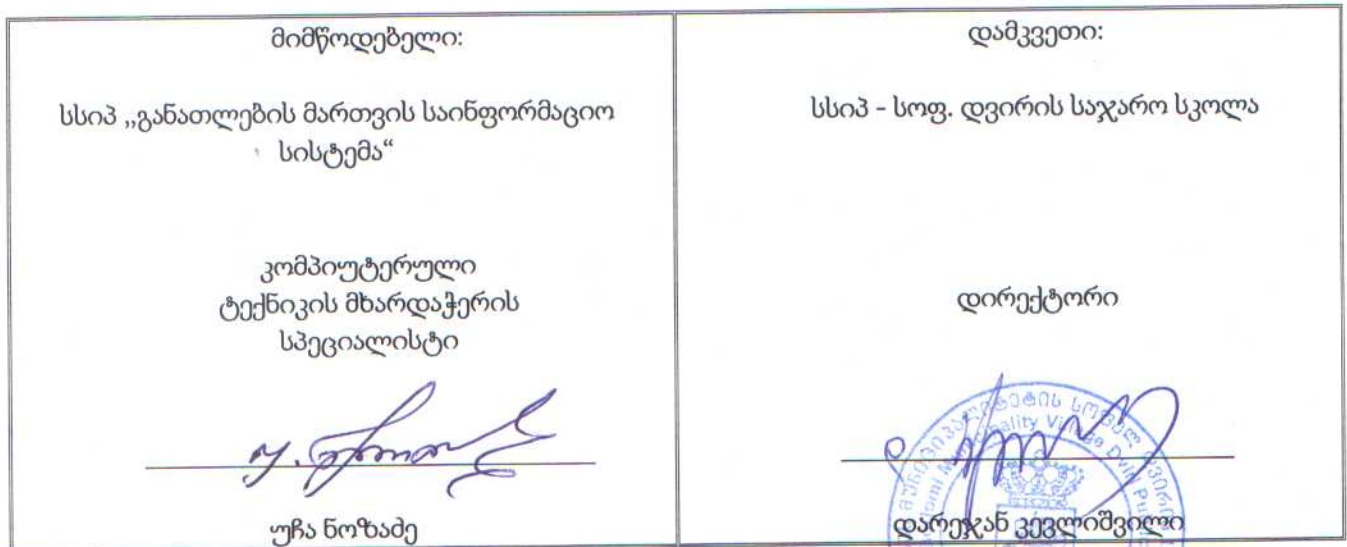 მიმწოდებელი:
სსიპ „განათლების მართვის საინფორმაციო
სისტემა“
კომპიუტერული
ტექნიკის მხარდაჭერის
სპეციალისტი
უჩა ნოზაძე
დამკვეთი:
სსიპ - სოფ. დვირის საჯარო სკოლა
დირექტორი
დარეჯან კევლიშვილი